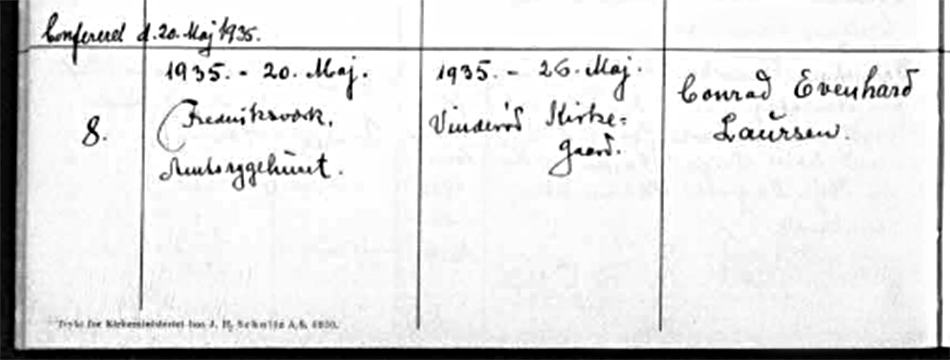 Confereret d. 20. Maj 1935.
8.
1935. - 20. Maj.
Frederiksværk.
Amtssygehuset.
1935. - 26. Maj.
Vinderød Kirke=
gaard.
Conrad Evenhard
Laursen.
Trykt for Kirkeministeriet hos J. H. Schultz A/S. 1930.